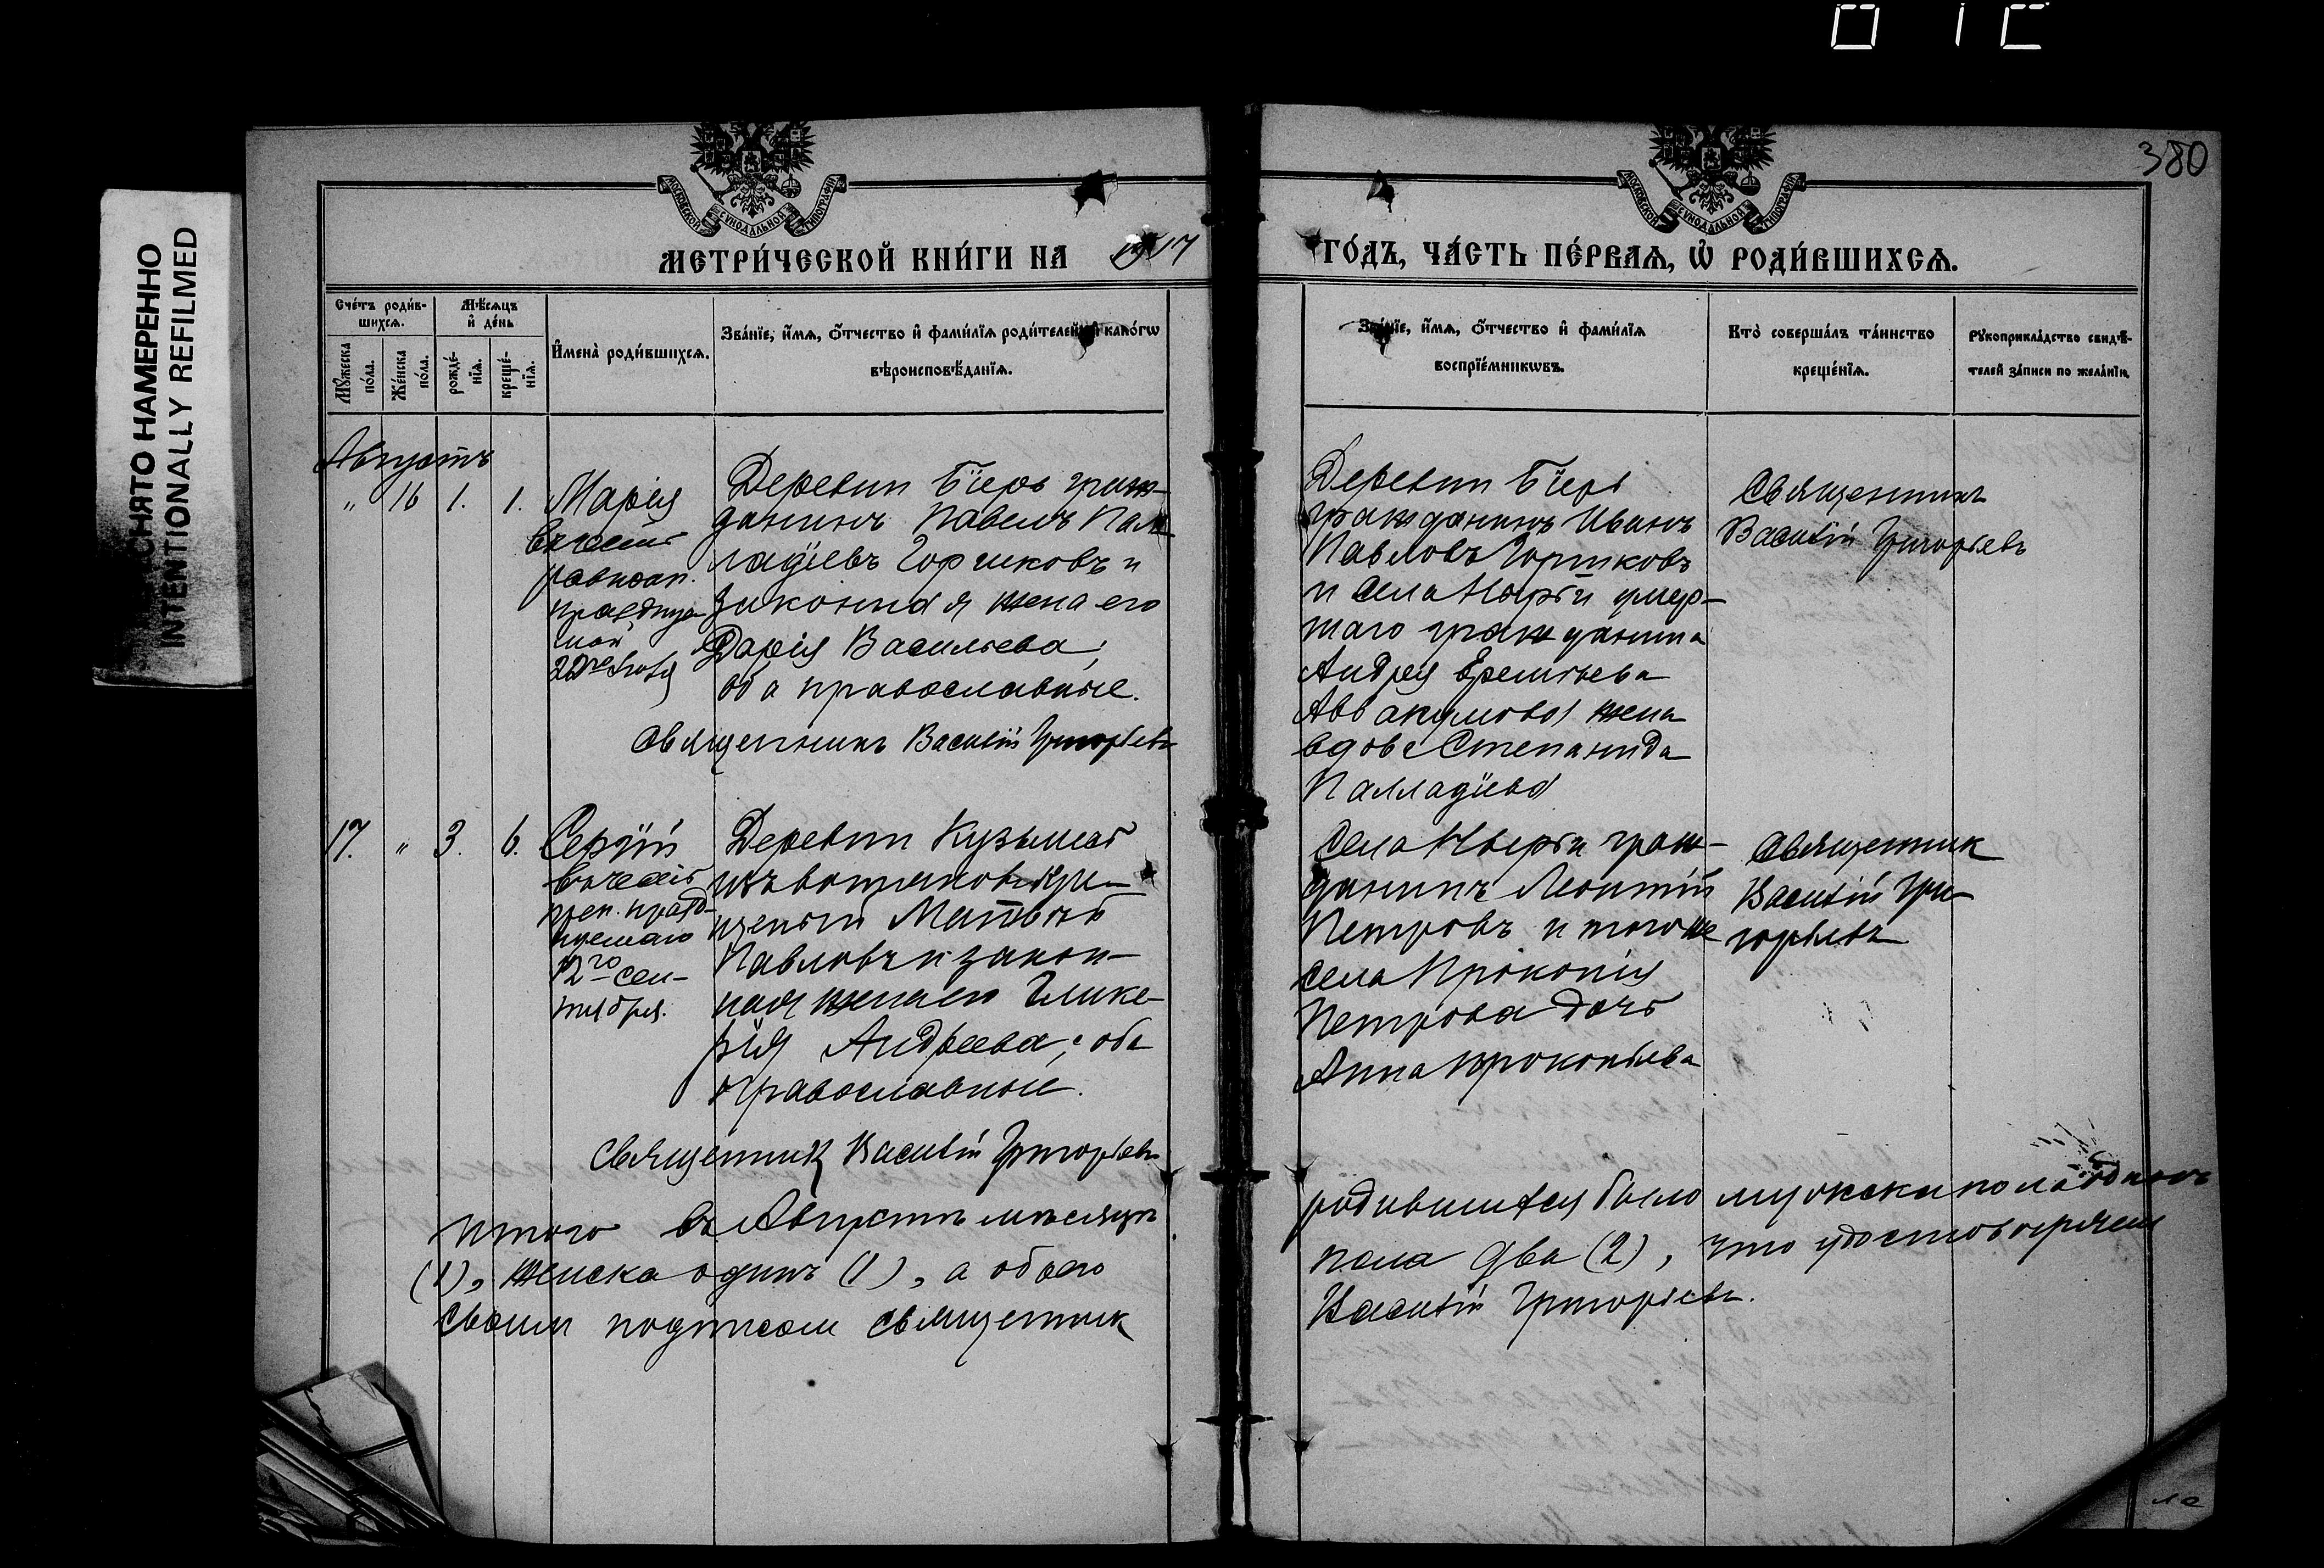 СНЯТО НАМЕРЕННО
INTENTIONALLY REFILMED
380
МОСКОВСКОЙ СѴНОДАЛЬНОЙ ТИПОГРАФІИ
МОСКОВСКОЙ СѴНОДАЛЬНОЙ ТИПОГРАФІИ
МЕТРИ́ЧЕСКОЙ КНИ́ГИ НА 1917
ГО́ДЪ, ЧА́СТЬ ПЕ́РВАѦ, Ѡ҆ РОДИ́ВШИХСѦ.
Сче́тъ роди́в-
шихсѧ.
Мѣ́сѧцъ
и҆ де́нь
Мꙋ́жеска
по́ла.
Же́нска
по́ла.
рожде́-
нїѧ.
креще́-
нїѧ.
И҆мена̀ роди́вшихсѧ.
Зва́нїе, и҆́мѧ, ѻ҆́тчество и҆ фами́лїѧ роди́телей, и҆ како́гѡ
вѣроисповѣ́данїѧ.
Зва́нїе, и҆́мѧ, ѻ҆́тчество и҆ фами́лїѧ
воспрїе́мникѡвъ.
Кто̀ соверша́лъ та́инство
креще́нїѧ.
Рꙋкоприкла́дство свидѣ́-
телей за́писи по жела́нїю.
Августъ
" 16 1. 1. Марія
въ честь
равноап.
празднуе-
мой
22го Іюля
Деревни Бiерь граж-
данинъ Павелъ Пал-
ладіевъ Горшковъ и
законная жена его
Дарія Васильева;
оба православные.
Священникъ Василій Григорьевъ
Деревни Бiерь
гражданинъ Иванъ
Павловъ Горшковъ
и села Нырьи умер-
шаго гражданина
Андрея Еремѣева
Аввакумова жена
вдова Степанида
Палладіева
Священникъ
Василій Григорьевъ
17. " 3. 6. Сергій
въ честь
преп. празд-
нуемаго
12го сен-
тября.
Деревни Кузьмесь
изъ вотяковъ кре-
щеный Матвѣй
Павловъ и закон-
ная жена его Глике-
рія Андреева; оба
православные.
Священник Василій Григорьевъ
Села Нырьи граж-
данинъ Леонтій
Петровъ и того же
села Прокопія
Петрова дочь
Анна Прокопьева
Священник
Василій Гри-
горьевъ
Итого въ Августѣ мѣсяцѣ
родившихся было мужска пола одинъ
(1), женска одинъ (1), а обоего
пола два (2), что удостовѣряем
своим подписом священник
Василій Григорьевъ.